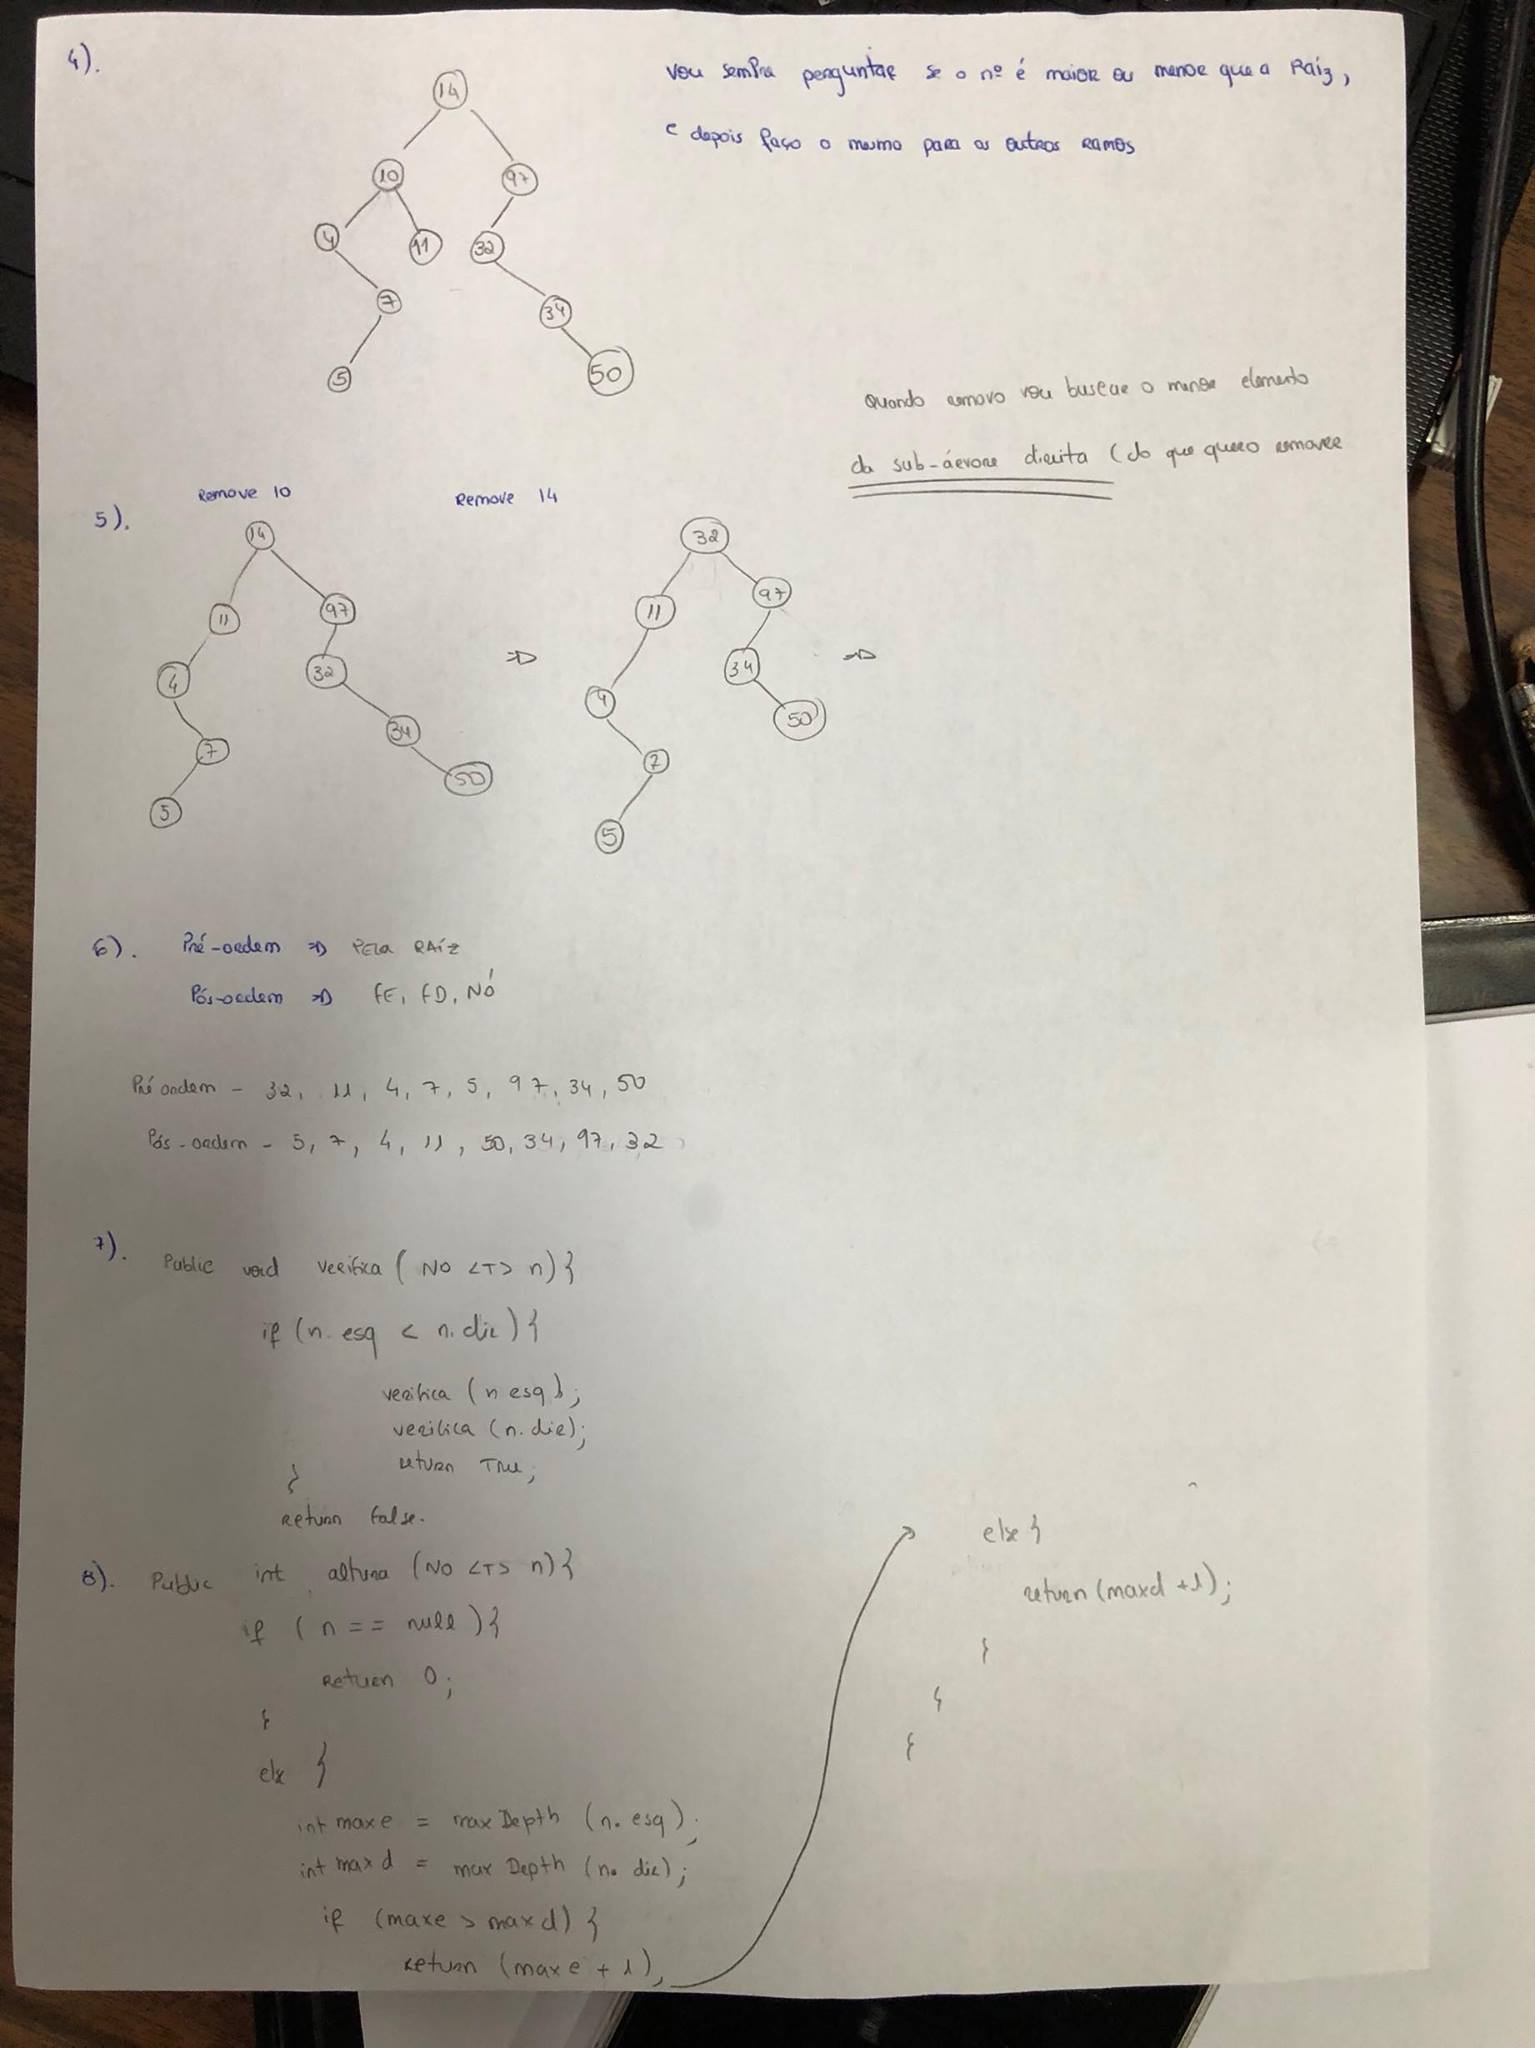 4).
Vou sempra perguntar se o nº é maior ou menor que a Raíz,
e depois faço o mesmo para os outros ramos
14
10
97
4
11
32
7
34
5
50
Quando removo vou buscar o menor elemento
da sub-árvore direita (do que quero remover
5).
Remove 10
Remove 14
14
11
97
4
32
7
34
5
50
=D
32
11
97
4
34
7
50
5
=D
6). Pré-ordem => Pela Raíz
Pós-ordem => fE, fD, NÓ
Pré ordem - 32, 11, 4, 7, 5, 97, 34, 50
Pós-ordem - 5, 7, 4, 11, 50, 34, 97, 32
7). Public void verifica (NO <T> n){
if (n.esq < n.dir){
verifica (n esq);
verifica (n.dir);
return True;
}
return false.
8). Public int altura (NO <T> n){
if (n == null){
Return 0;
}
else {
int maxe = maxDepth (n.esq);
int maxd = max Depth (n.dir);
if (maxe > maxd) {
return (maxe + 1),
else {
return (maxd +1);
}
}
}